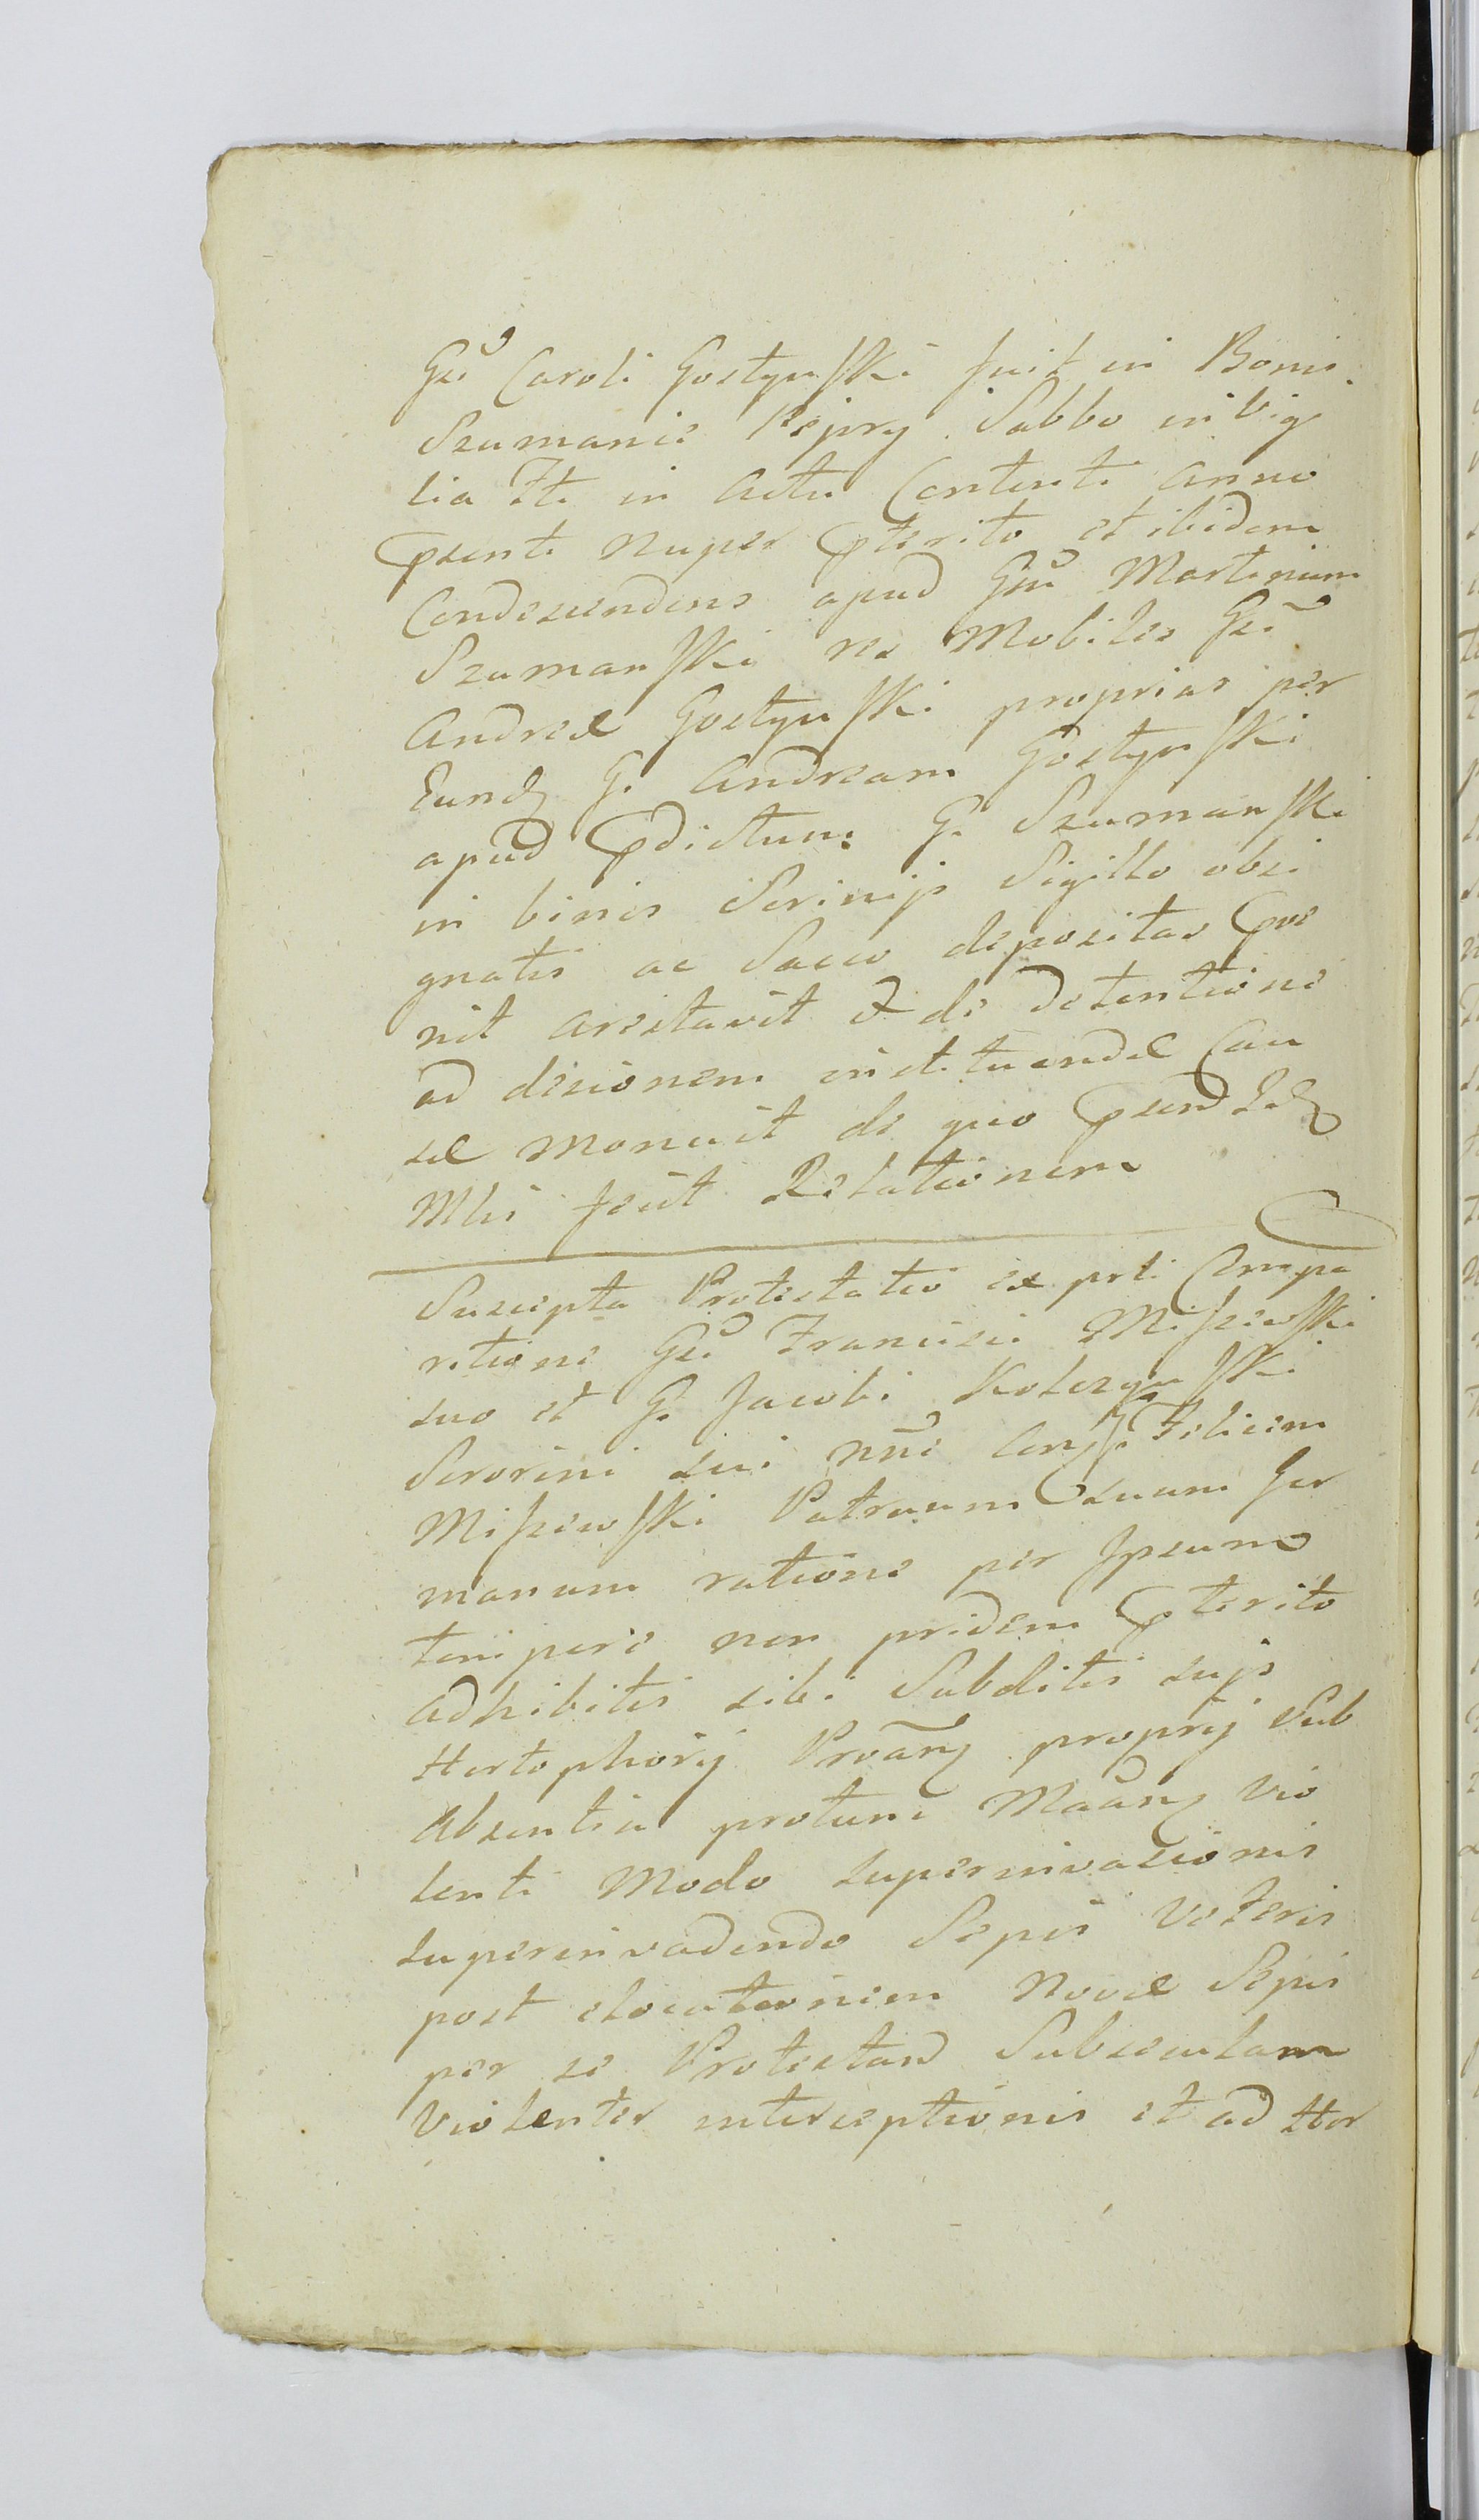 Gsi Caroli Gostynski fuit in Bonis
Szumanie Rsipry Sabbo in Vigi
lia Fti in Actu Contenti Anno
psenti nuper pterito et ibidem
Condescendens apud Gsu Martinum
Szumanski res Mobiles Gsi
Andreæ Gostynski proprias per
Eundq G. Andream Gostynski
apud pdictum G. Szumanski
in binis Scrinijs Sigillo obsi
gnatis ac Sacco depositas pve
nit arestavit & de detentione
ad decisionem instituendæ Cau
sæ monuit de quo psend
Mhi fecit Relationem
Suscepta Protestatio ex prti Compa
ritione Gsi Francisci Miszewski
suo et G. Jacobi Kolczynski
Sororini sui nne Cen Felicem
Miszewski Patruum suum Ger
manum ratione per Ipsum
tempore non pridem pterito
adhibitis sibi Subditis sujs
Hortophorij Proarq proprij sub
Absentia protunc Maanq Vio
lenti Modo superinvasionis
superinvadendo Sepis Veteris
post elocationem novæ Sepis
per se Protestand Subsecutam
Violenter interceptionis et ad Hor